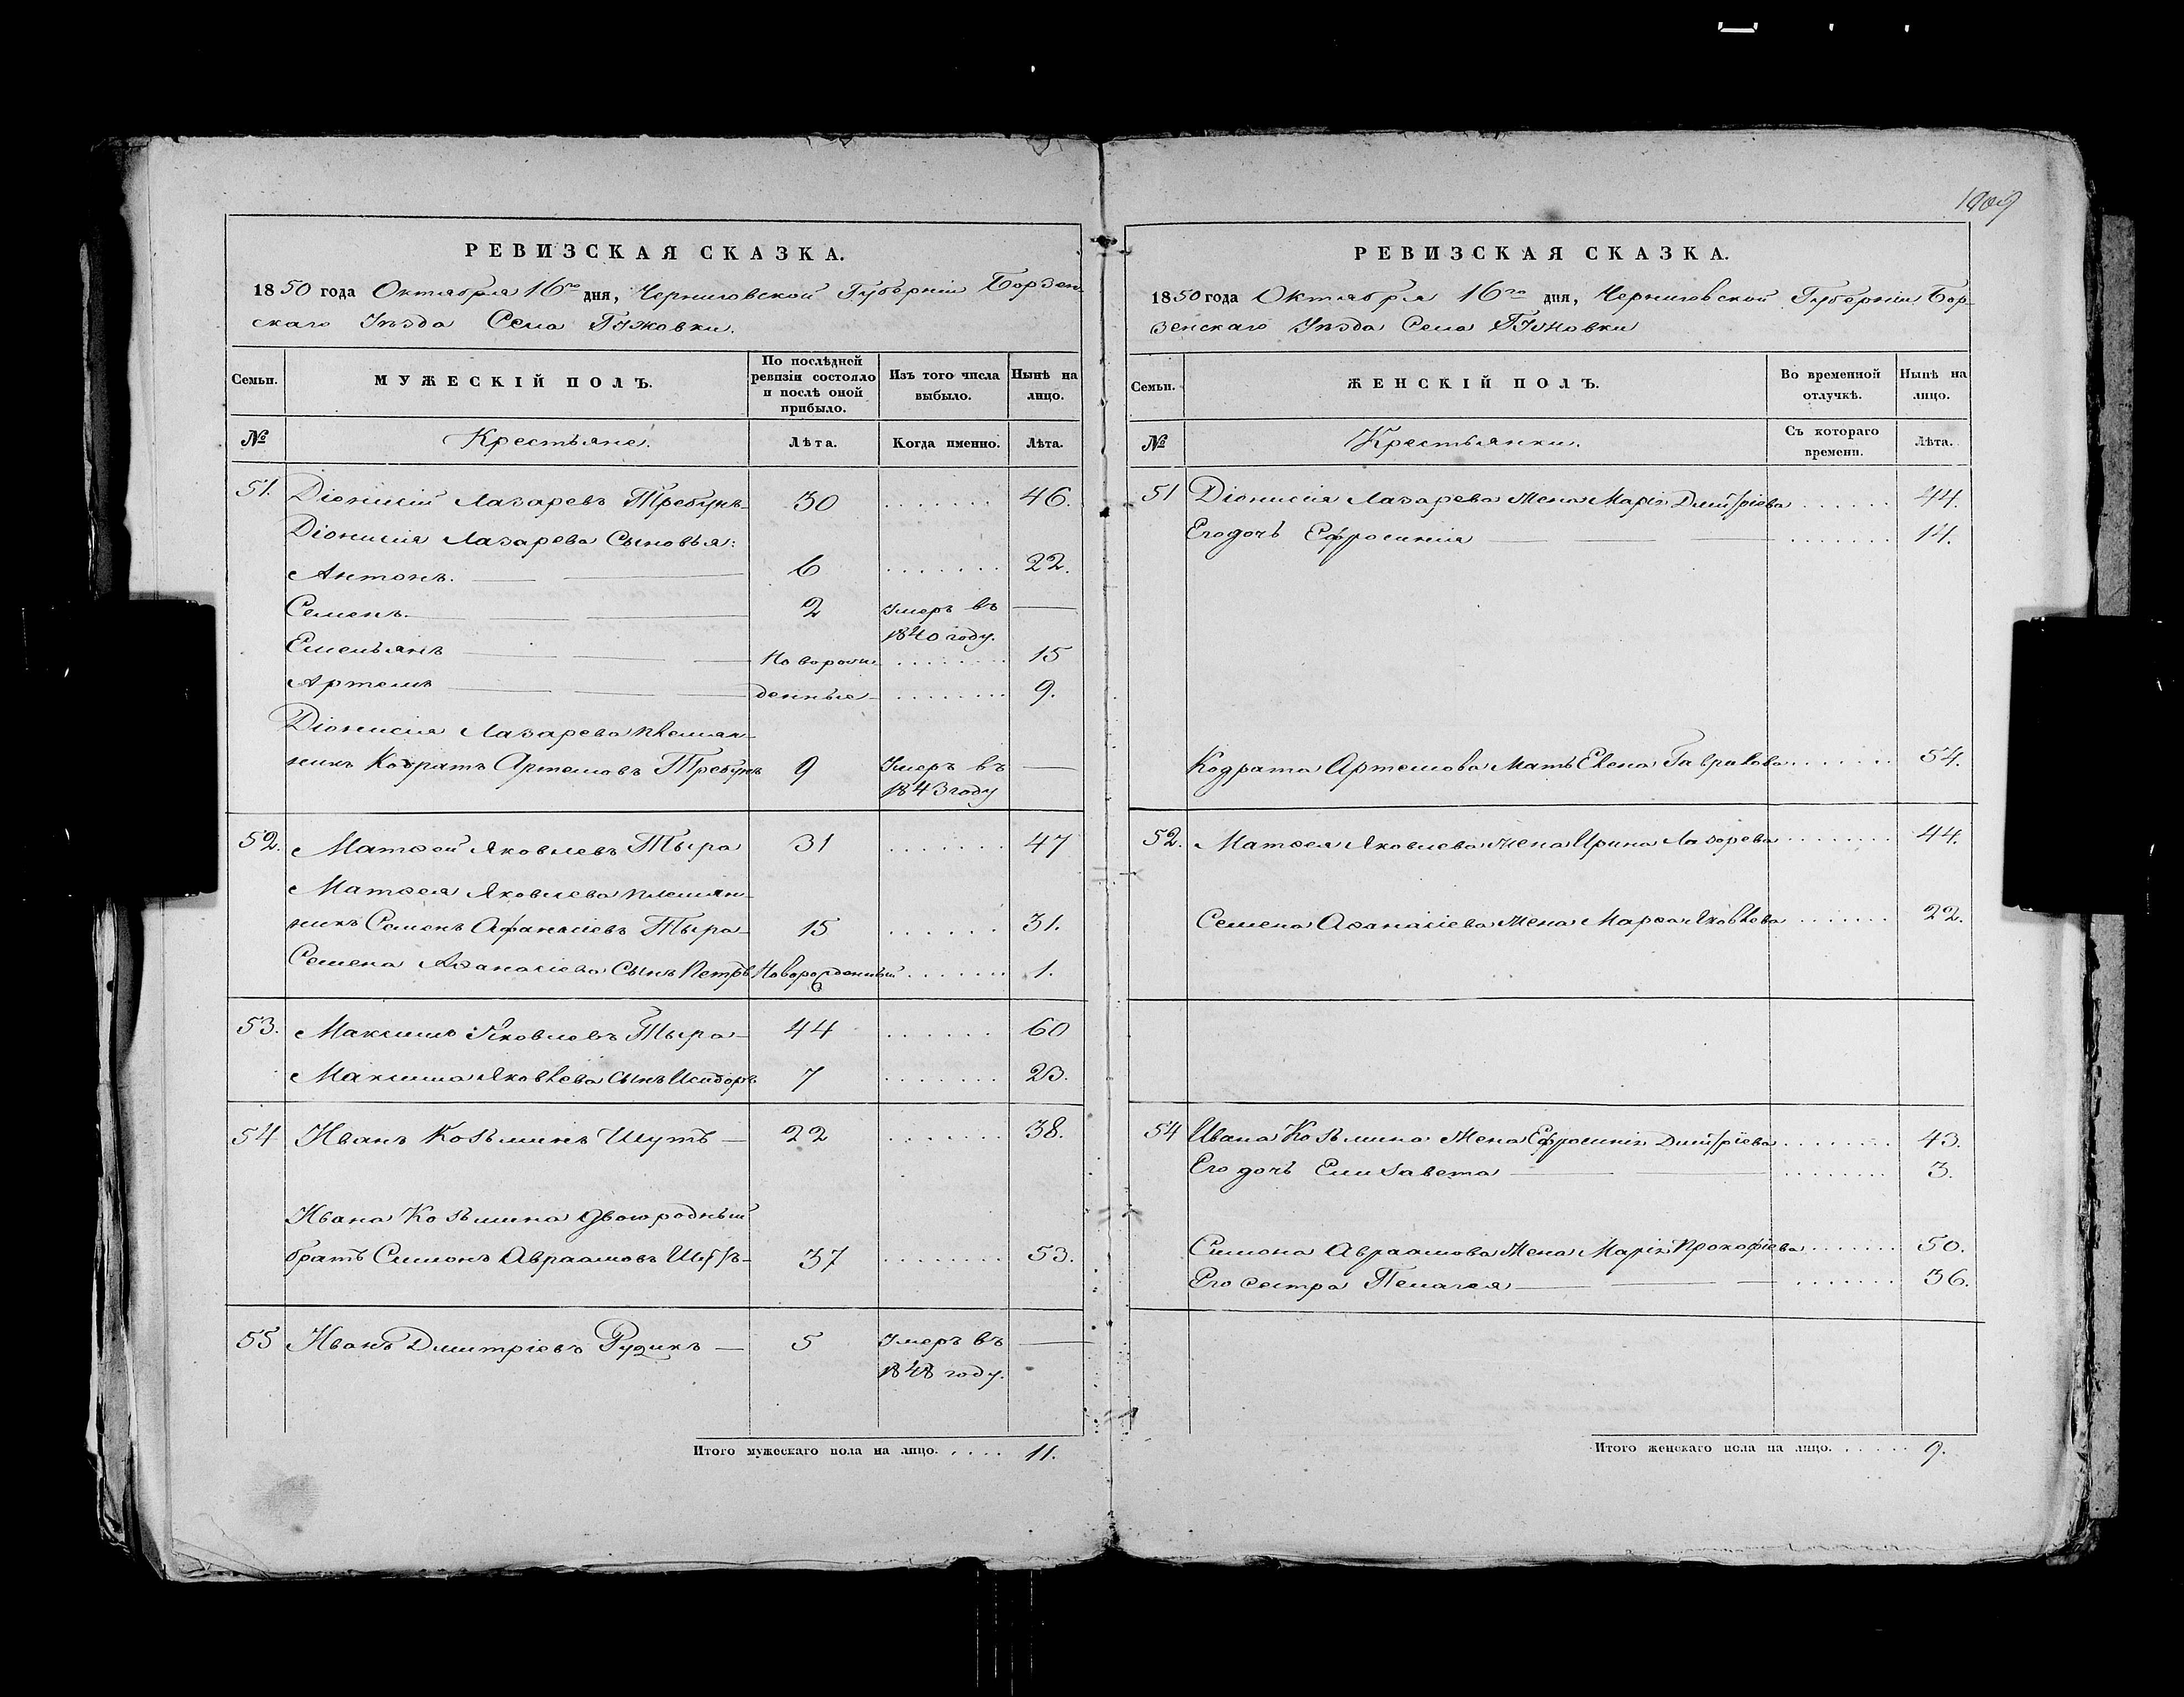 РЕВИЗСКАЯ СКАЗКА.
1850 года Октября 16го дня, Черниговской Губерніи Борзен-
скаго Уѣзда Села Гужовки.
Семьи. МУЖЕСКІЙ ПОЛЪ. По послѣдней ревизіи состояло и послѣ оной прибыло. Изъ того числа выбыло. Нынѣ на лицо.
№ Крестьяне. Лѣта. Когда именно. Лѣта.
51. Діонисій Лазаревъ Требунъ 30 ....... 46.
Діонисія Лазарева Сыновья:
Антонъ. 6 ....... 22.
Семенъ. 2 Умеръ въ —
1840 году.
Емельянъ Новорож- ....... 15
Артемъ денные ....... 9.
Діонисія Лазарева племян-
никъ Кодратъ Артемовъ Требунъ 9 Умеръ въ —
1843 году
52. Матѳей Яковлевъ Тыра 31 ....... 47
Матѳея Яковлева племян-
никъ Семенъ Афанасіевъ Тыра 15 ....... 31.
Семена Аѳанасіева Сынъ Петръ Новорожденный ....... 1.
53. Максимъ Яковлевъ Тыра 44 ....... 60
Максима Яковлева Сынъ Исидоръ 7 ....... 23.
54 Иванъ Козьминъ Шутъ 22 ....... 38.
Ивана Козьмина двоюродный
братъ Симонъ Авраамовъ Шутъ 37 ....... 53.
55 Иванъ Дмитріевъ Рудикъ 5 Умеръ въ —
1848 году.
Итого мужескаго пола на лицо. .... 11.
РЕВИЗСКАЯ СКАЗКА.
1850 года Октября 16го дня, Черниговской Губерніи Бор-
зенскаго Уѣзда Села Гужовки
Семьи. ЖЕНСКІЙ ПОЛЪ. Во временной отлучкѣ. Нынѣ на лицо.
№ Крестьянки. Съ котораго времени. Лѣта.
51 Діонисія Лазарева Жена Марія Дмитріева ...... 44.
Его дочь Ефросинія ....... 14.
Кодрата Артемова Мать Елена Гаврилова ....... 54.
52. Матѳея Яковлева жена Ирина Лазарева ....... 44.
Семена Аѳанасіева Жена Марѳа Яковлева ....... 22.
54 Ивана Козьмина Жена Ефросинія Дмитріева ....... 43.
Его дочь Елизавета ....... 3.
Симона Авраамова Жена Марія Прокофіева ....... 50.
Его сестра Пелагея ....... 36.
Итого женскаго пола на лицо. ..... 9.